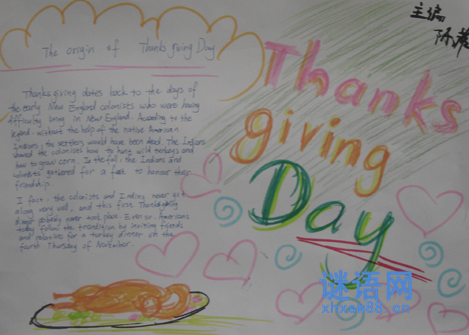 主编
陈
The origin of Thanksgiving Day
Thanksgiving dates back to the days of
the early New England colonists who were having
difficulty living in New England. According to the
legend without the help of the native American
Indians, the settlers would have been dead. The Indians
showed the colonists how to hunt wild turkeys and
how to grow corn. In the fall, the Indians and
whites gathered for a feast to honour their
friendship
I fact, the colonists and Indians never got
along very well, and this first Thanksgiving
probably never took place. Even so, Americans
today follow the tradition by inviting friends
and relatives for a turkey dinner on the
fourth Thursday of November.
Thanks
giving
Day
谜语网